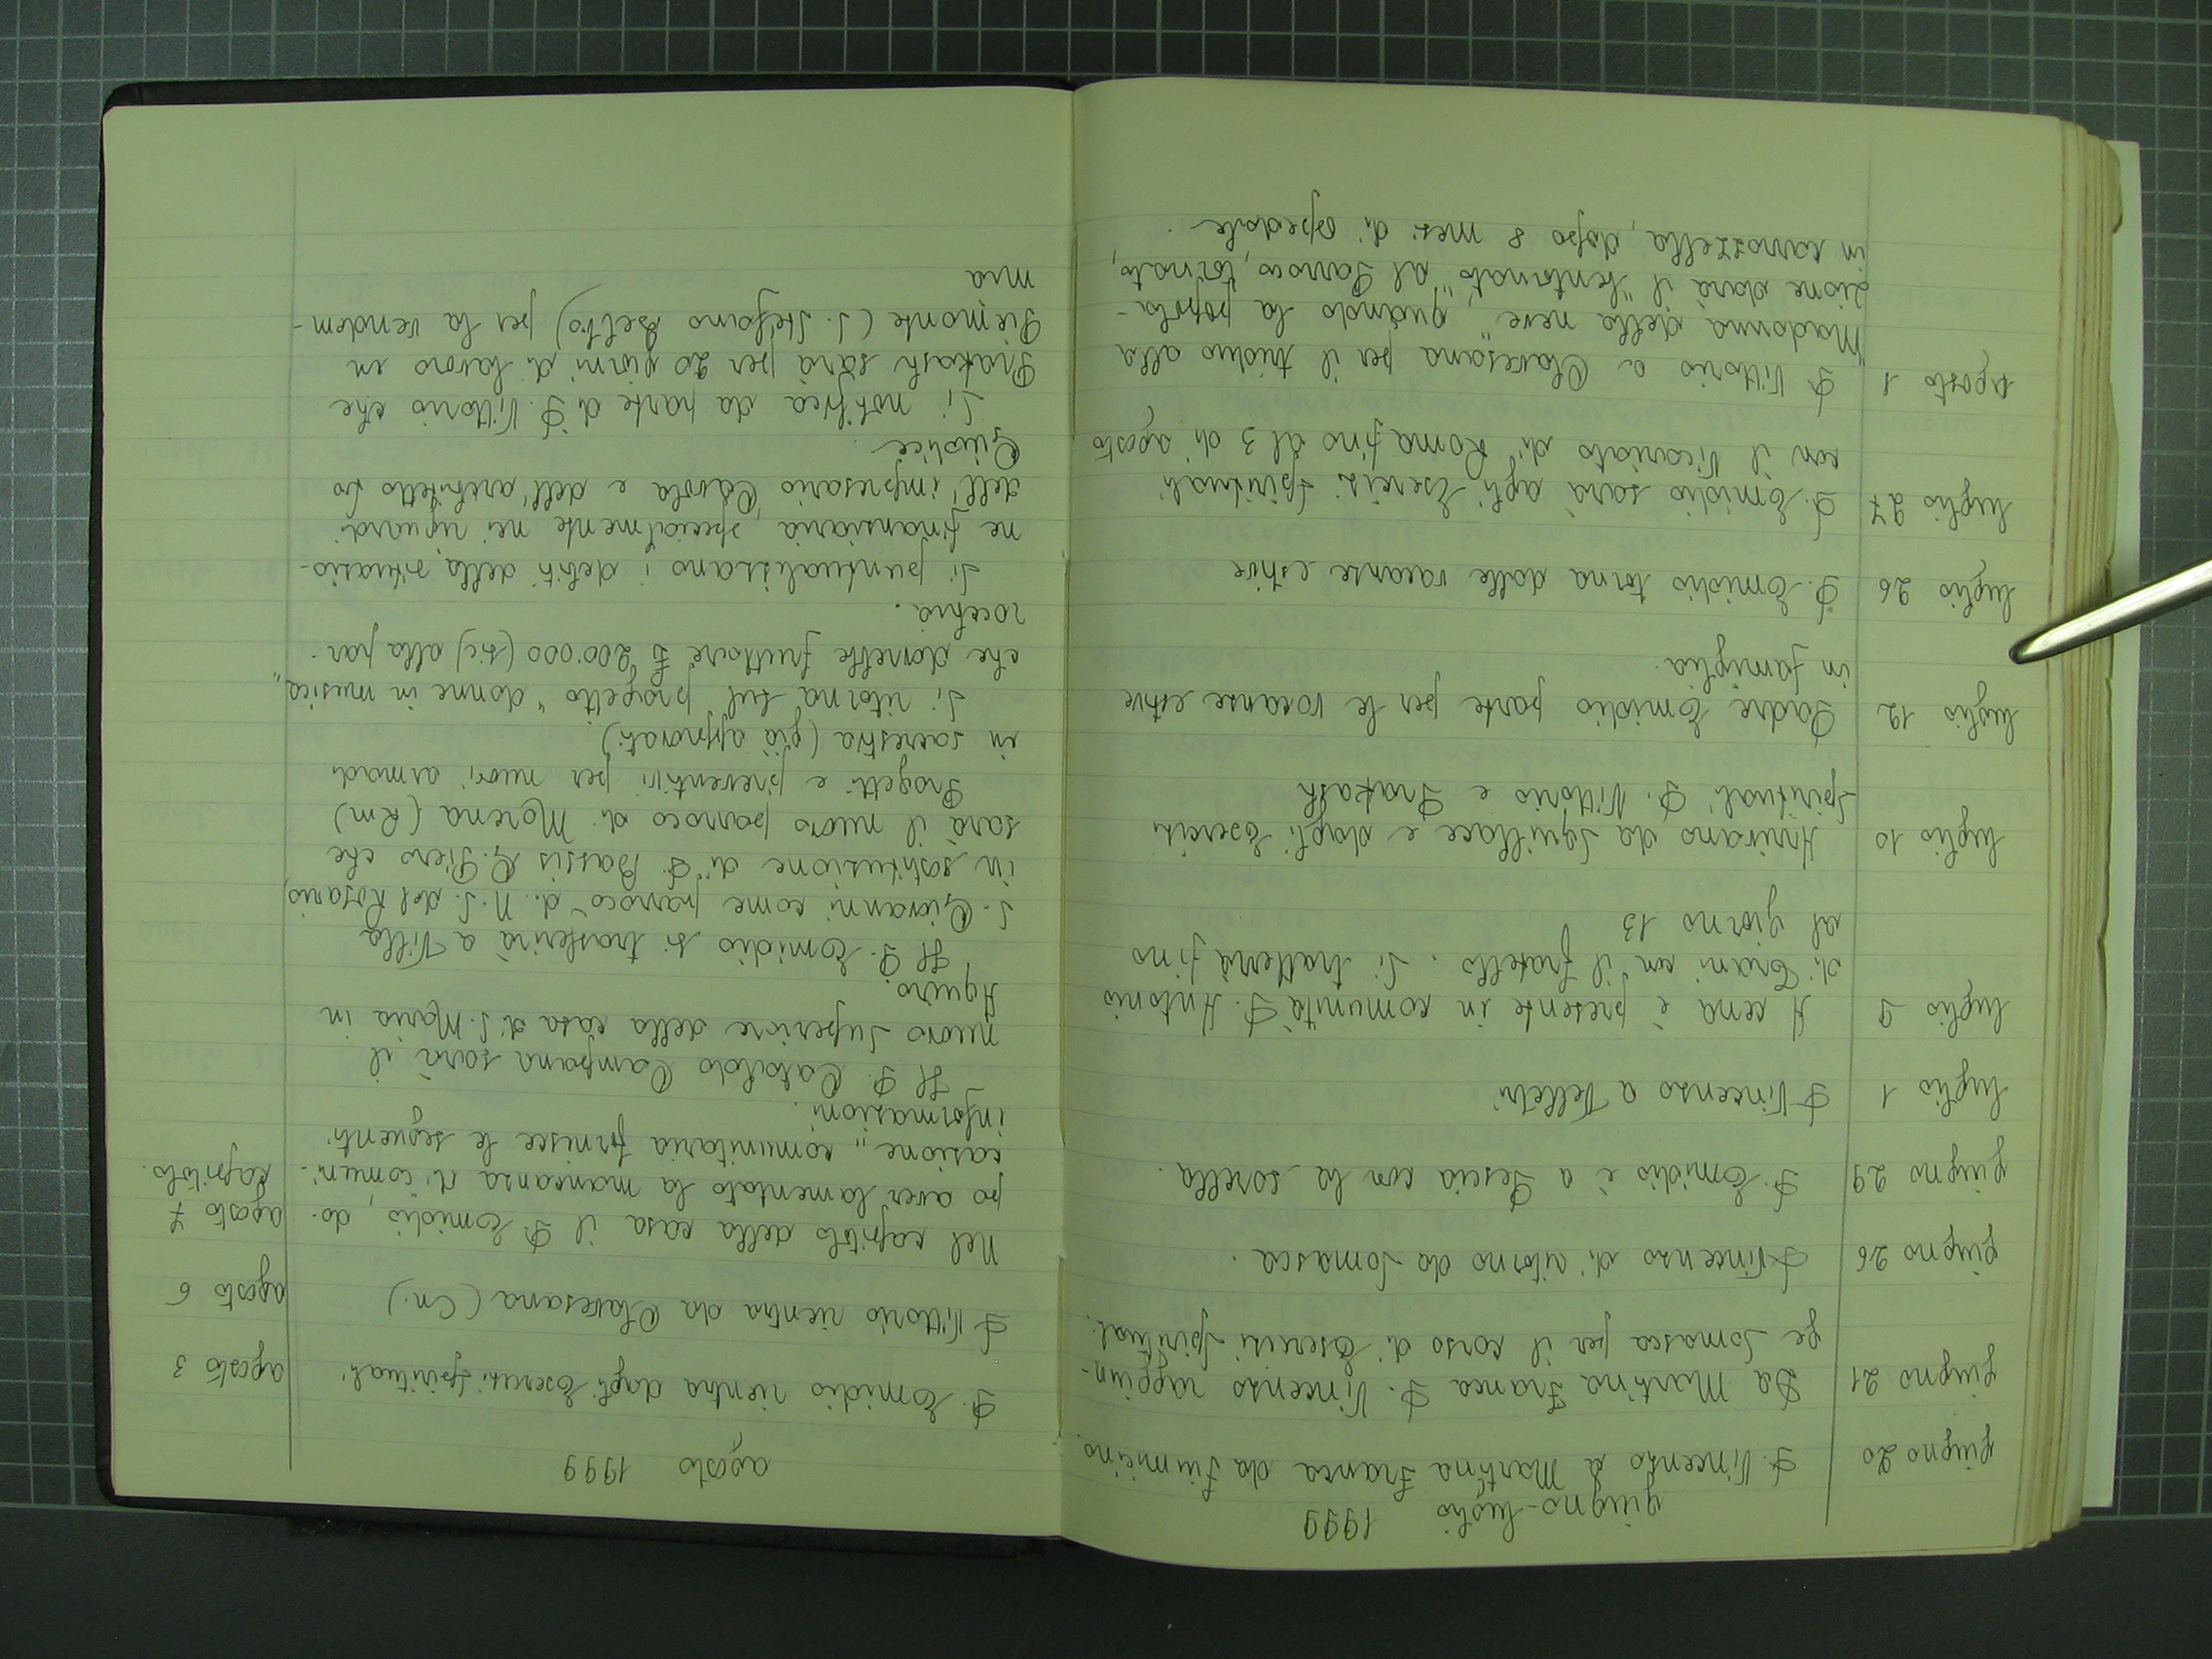 giugno-luglio 1999
giugno 20 P. Vincenzo a Martina Franca da Fiumicino.
giugno 21 Da Martina Franca P. Vincenzo raggiun-
ge Somasca per il corso di Esercizi Spirituali.
giugno 26 P. Vincenzo di ritorno da Somasca.
giugno 29 P. Emidio è a Pescia con la sorella.
luglio 1 P. Vincenzo a Velletri
luglio 9 A cena è presente in comunità P. Antonio
di Criani con il fratello. Si tratterrà fino
al giorno 13
luglio 10 Arrivano da Squillace e dagli Esercizi
Spirituali P. Vittorio e Prakash
luglio 12 Padre Emidio parte per le vacanze estive
in famiglia.
luglio 26 P. Emidio torna dalle vacanze estive
luglio 27 P. Emidio sarà agli Esercizi Spirituali
con il Vicariato di Roma fino al 3 di agosto
agosto 1 P. Vittorio a Clavesana per il triduo alla
"Madonna della neve", quando la popola-
zione darà il "bentornato" al Parroco, tornato,
in carrozzella, dopo 8 mesi di ospedale.
agosto 1999
agosto 3 P. Emidio rientra dagli Esercizi Spirituali
agosto 6 P. Vittorio rientra da Clavesana (Cn.)
agosto 7 Nel capitolo della casa il P. Emidio, do-
capitolo. po aver lamentato la mancanza di comuni-
cazione "comunitaria fornisce le seguenti
informazioni.
Il P. Cataldo Campana sarà il
nuovo Superiore della casa di S. Maria in
Aquiro.
Il P. Emidio si trasferirà a Villa
S. Giovanni come parroco di N.S. del Rosario,
in sostituzione di P. Bassis G. Piero che
sarà il nuovo parroco di Morena (Rm)
Progetti e preventivi per nuovi armadi
in sacrestia (già approvati).
Si ritorna sul progetto "donne in musica"
che dovrebbe fruttare £ 200.000 (sic) alla par-
rocchia.
Si puntualizzano i debiti della situazio-
ne finanziaria, specialmente nei riguardi
dell'impresario Cavola e dell'architetto Lo
Giudice.
Si notifica da parte di P. Vittorio che
Prakash sarà per 20 giorni di lavoro in
Piemonte (S. Stefano Belbo) per la vendem-
mia